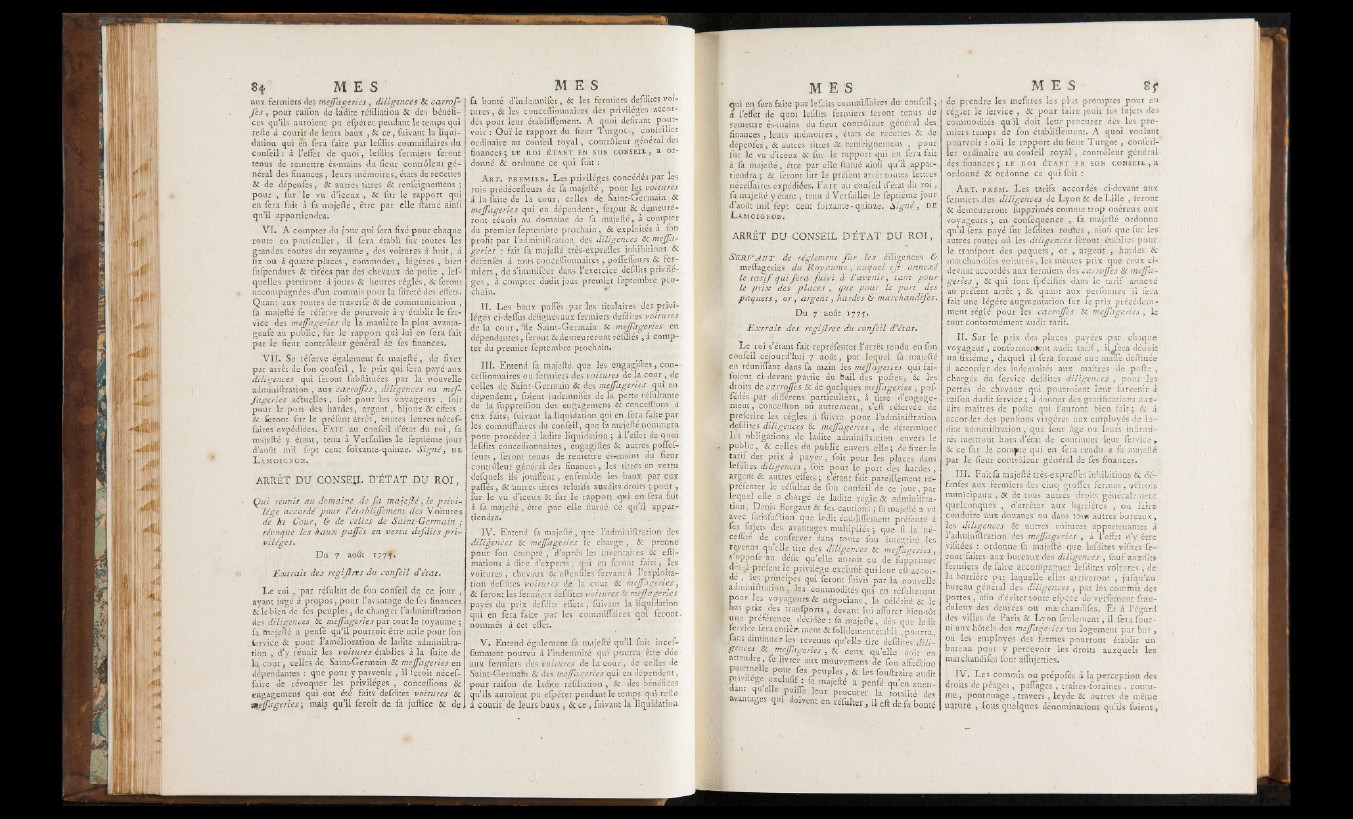 84 MES MES
aux fermiers des messageries, diligences & carros-
ses, pour raison de ladite résiliation & des bénéfi-
ces qu'ils auroient pu espérer pendant le temps qui
reste à courir de leurs baux, & ce, suivant la liqui-
dation qui en sera faite par lesdits commissaires du
conseil : à l'effet de quoi, lesdits fermiers seront
tenus de remettre ès-mains du sieur contrôleur gé-
néral des finances, leurs mémoires, états de recettes
& de dépenses, & autres titres & renseignemens ;
pour, sur le vu d'iceux, & sur le rapport qui
en sera fait à sa majesté, être par elle statué ainsi
qu'il appartiendra.
VI. A compter du jour qui sera fixé pour chaque
route en particulier, il sera établi sur toutes les
grandes routes du royaume, des voitures à huit, à
six ou à quatre places, commodes, légères, bien
suspendues & tirées par des chevaux de poste, les-
quelles partiront à jours & heures réglés, & seront
accompagnées d'un commis pour la sûreté des effets.
Quant aux routes de traverse & de communication,
sa majesté se réserve de pourvoir à y établir le ser-
vice des messageries de la manière la plus avanta-
geuse au public, sur le rapport qui lui en sera fait
par le sieur contrôleur général de ses finances.
VII. Se réserve également sa majesté, de fixer
par arrêt de son conseil, le prix qui sera payé aux
diligences qui seront substituées par la nouvelle
administration, aux carrosses, diligences ou mes-
sageries actuelles, soit pour les voyageurs, soit
pour le port des hardes, argent, bijoux & effets :
& seront sur le présent arrêt, toutes lettres néces-
saires expédiées. FAIT au conseil d'état du roi, sa
majesté y étant, tenu à Versailles le septième jour
d'août mil sept cent soixante-quinze. Signé, DE
LAMOIGNON.
ARRÊT DU CONSEIL D'ÉTAT DU ROI,
Qui réunit au domaine de sa majesté, le privi-
lége accordé pour l'établissement des Voitures
de la Cour, & de celles de Saint-Germain ;
révoque les baux passés en vertu desdits pri-
viléges.
Du 7 août 1775.
Extrait des registres du conseil d'état.
Le roi, par résultat de son conseil de ce jour,
ayant jugé à propos, pour l'avantage de ses finances
& le bien de ses peuples, de changer l'administration
des diligences & messageries par tout le royaume ;
sa majesté a pensé qu'il pourroit être utile pour son
service & pour l'amélioration de ladite administra-
tion, d'y réunir les voitures établies à la suite de
la cour, celles de Saint-Germain & messageries en
dépendantes : que pour y parvenir, il seroit néces-
saire de révoquer les priviléges, concessions &
engagemens qui ont été faits desdites voitures &
messageries ; mais qu'il seroit de sa justice & de
sa bonté d'indemniser, & les fermiers desdites voi-
tures, & les concessionnaires des priviléges accor-
dés pour leur établissement. A quoi desirant pour-
voir : Ouï le rapport du sieur Turgot, conseiller
ordinaire au conseil royal, contrôleur général des
finances ; LE ROI ÉTANT EN SON CONSEIL, a or-
donné & ordonne ce qui suit :
ART. PREMIER. Les priviléges concédés par les
rois prédécesseurs de sa majesté, pour les voitures
à la suite de la cour, celles de Saint-Germain &
messageries qui en dépendent, seront & demeure-
ront réunis au domaine de sa majesté, à compter
du premier septembre prochain, & exploités à son
profit par l'administration des diligences & messa-
geries : fait sa majesté très-expresses inhibitions &
défenses à tous concessionnaires, possesseurs & fer-
miers, de s'immiscer dans l'exercice desdits privilé-
ges, à compter dudit jour premier septembre pro-
chain.
II. Les baux passés par les titulaires des privi-
léges ci-dessus désignés aux fermiers desdites voitures
de la cour, de Saint-Germain & messageries en
dépendantes, seront & demeureront résiliés, à comp-
ter du premier septembre prochain.
III. Entend sa majesté que les engagistes, con-
cessionnaires ou fermiers des voitures de la cour, de
celles de Saint-Germain & des messageries qui en
dépendent, soient indemnisés de la perte résultante
de la suppression des engagemens & concessions à
eux faits, suivant la liquidation qui en sera faite par
les commissaires du conseil, que sa majesté nommera
pour procéder à ladite liquidation ; à l'effet de quoi
lesdits concessionnaires, engagistes & autres posses-
seurs, seront tenus de remettre ès-mains du sieur
contrôleur général des finances, les titres en vertu
desquels ils jouissent, ensemble les baux par eux
passés, & autres titres relatifs auxdits droits : pour,
sur le vu d'iceux & sur le rapport qui en sera fait
à sa majesté, être par elle statué ce qu'il appar-
tiendra.
IV. Entend sa majesté, que l'administration des
diligences & messageries se charge, & prenne
pour son compte, d'après les inventaires & esti-
mations à dire d'experts, qui en seront faits, les
voitures, chevaux & ustensiles servans à l'exploita-
tion desdites voitures de la cour & messageries,
& seront les fermiers desdites voitures & messageries
payés du prix desdits effets, suivant la liquidation
qui en sera faite par les commissaires qui seront
nommés à cet effet.
V. Entend également sa majesté qu'il soit inces-
samment pourvu à l'indemnité qui pourra être due
aux fermiers des voitures de la cour, de celles de
Saint-Germain & des messageries qui en dépendent,
pour raison de ladite résiliation, & des bénéfices
qu'ils auroient pu espérer pendant le temps qui reste
à courir de leurs baux, & ce, suivant la liquidation
MES MES 85
qui en sera faite par lesdits commissaires du conseil ;
à l'effet de quoi lesdits fermiers seront tenus de
remettre ès-mains du sieur contrôleur général des
finances, leurs mémoires, états de recettes & de
dépenses, & autres titres & renseignemens, pour
sur le vu d'iceux & sur le rapport qui en sera fait
à sa majesté, être par elle statué ainsi qu'il appar-
tiendra ; & seront sur le présent arrêt toutes lettres
nécessaires expédiées. FAIT au conseil d'état du roi,
sa majesté y étant, tenu à Versailles le septième jour
d'août mil sept cent soixante-quinze. Signé, DE
LAMOIGNON.
ARRÊT DU CONSEIL D'ÉTAT DU ROI,
SERVANT de réglement sur les diligences &
messageries du Royaume, auquel est annexé
le tarif qui sera suivi à l'avenir, tant pour
le prix des places, que pour le port des
paquets, or, argent, hardes & marchandises.
Du 7 août 1775.
Extrait des registres du conseil d'état.
Le roi s'étant fait représenter l'arrêt rendu en son
conseil cejourd'hui 7 août, par lequel sa majesté
en réunissant dans sa main les messageries qui fai-
soient ci-devant partie du bail des postes, & les
droits de carrosses & de quelques messageries, pos-
sédés par différens particuliers, à titre d'engage-
ment, concession ou autrement, s'est réservée de
prescrire les régles à suivre pour l'administration
desdites diligences & messageries, de déterminer
les obligations de ladite administration envers le
public, & celles du public envers elle ; de fixer le
tarif des prix à payer, soit pour les places dans
lesdites diligences, soit pour le port des hardes,
argent & autres effets ; s'étant fait pareillement re-
présenter le résultat de son conseil de ce jour, par
lequel elle a chargé de ladite régie & administra-
tion, Denis Bergaut & ses cautions ; sa majesté a vu
avec satisfaction que ledit établissement présente à
ses sujets des avantages multipliés ; que si la né-
cessité de conserver dans toute son intégrité les
revenus qu'elle tire des diligences & messageries,
s'oppose au désir qu'elle auroit eu de supprimer
dès-à-présent le privilége exclusif qui leur est accor-
dé, les principes qui seront suivis par la nouvelle
administration, les commodités qui en résulteront
pour les voyageurs & négocians, la célérité & le
bas prix des transports, devant lui assurer bien-tôt
une préférence décidée : sa majesté, dès que ledit
service sera entièrement & solidement établi, pourra,
sans diminuer les revenus qu'elle tire desdites dili-
gences & messageries, & ceux qu'elle doit en
attendre, se livrer aux mouvemens de son affection
paternelle pour ses peuples, & les soustraire audit
privilége exclusif : sa majesté a pensé qu'en atten-
dant qu'elle puisse leur procurer la totalité des
avantages qui doivent en résulter, il est de sa bonté
de prendre les mesures les plus promptes pour en
régler le service, & pour faire jouir ses sujets des
commodités qu'il doit leur procurer dès les pre-
miers temps de son établissement. A quoi voulant
pourvoir : ouï le rapport du sieur Turgot, conseil-
ler ordinaire au conseil royal, contrôleur général
des finances ; LE ROI ÉTANT EN SON CONSEIL, a
ordonné & ordonne ce qui suit :
ART. PREM. Les tarifs accordés ci-devant aux
fermiers des diligences de Lyon & de Lille, seront
& demeureront supprimés comme trop onéreux aux
voyageurs ; en conséquence, sa majesté ordonne
qu'il sera payé sur lesdites routes, ainsi que sur les
autres routes où les diligences seront établies pour
le transport des paquets, or, argent, hardes &
marchandises voiturés, les mêmes prix que ceux ci-
devant accordés aux fermiers des carrosses & messa-
geries, & qui sont spécifiés dans le tarif annexé
au présent arrêt ; & quant aux personnes il sera
fait une légère augmentation sur le prix précédem-
ment réglé pour les carrosses & messageries, le
tout conformément audit tarif.
II. Sur le prix des places payées par chaque
voyageur, conformément audit tarif, il sera déduit
un sixième, duquel il sera formé une masse destinée
à accorder des indemnités aux maîtres de poste,
chargés du service desdites diligences, pour les
pertes de chevaux qui pourroient leur survenir à
raison dudit service ; à donner des gratifications aux-
dits maîtres de poste qui l'auront bien fait ; & à
accorder des pensions viagères aux employés de la-
dite administration, que leur âge ou leurs infirmi-
tés mettront hors d'état de continuer leur service,
& ce sur le compte qui en sera rendu à sa majesté
par le sieur contrôleur général de ses finances.
III. Fait sa majesté très-expresses inhibitions & dé-
fenses aux fermiers des cinq grosses fermes, octrois
municipaux, & de tous autres droits généralement
quelconques, d'arrêter aux barrières, ou faire
conduire aux douanes ou dans tous autres bureaux,
les diligences & autres voitures appartenantes à
l'administration des messageries, à l'effet d'y être
visitées : ordonne sa majesté que lesdites visites se-
ront faites aux bureaux des diligences, sauf auxdits
fermiers de faire accompagner lesdites voitures, de
la barrière par laquelle elles arriveront, jusqu'au
bureau général des diligences, par les commis des
portes, afin d'éviter toute espèce de versement frau-
duleux des denrées ou marchandises. Et à l'égard
des villes de Paris & Lyon seulement, il sera four-
ni aux hôtels des messageries un logement par bas,
où les employés des fermes pourront établir un
bureau pour y percevoir les droits auxquels les
marchandises sont assujetties.
IV. Les commis ou préposés à la perception des
droits de péages, passages, traites-foraines, coutu-
me, pontonage, travers, leyde & autres de même
nature, sous quelques dénominations qu'ils soient,